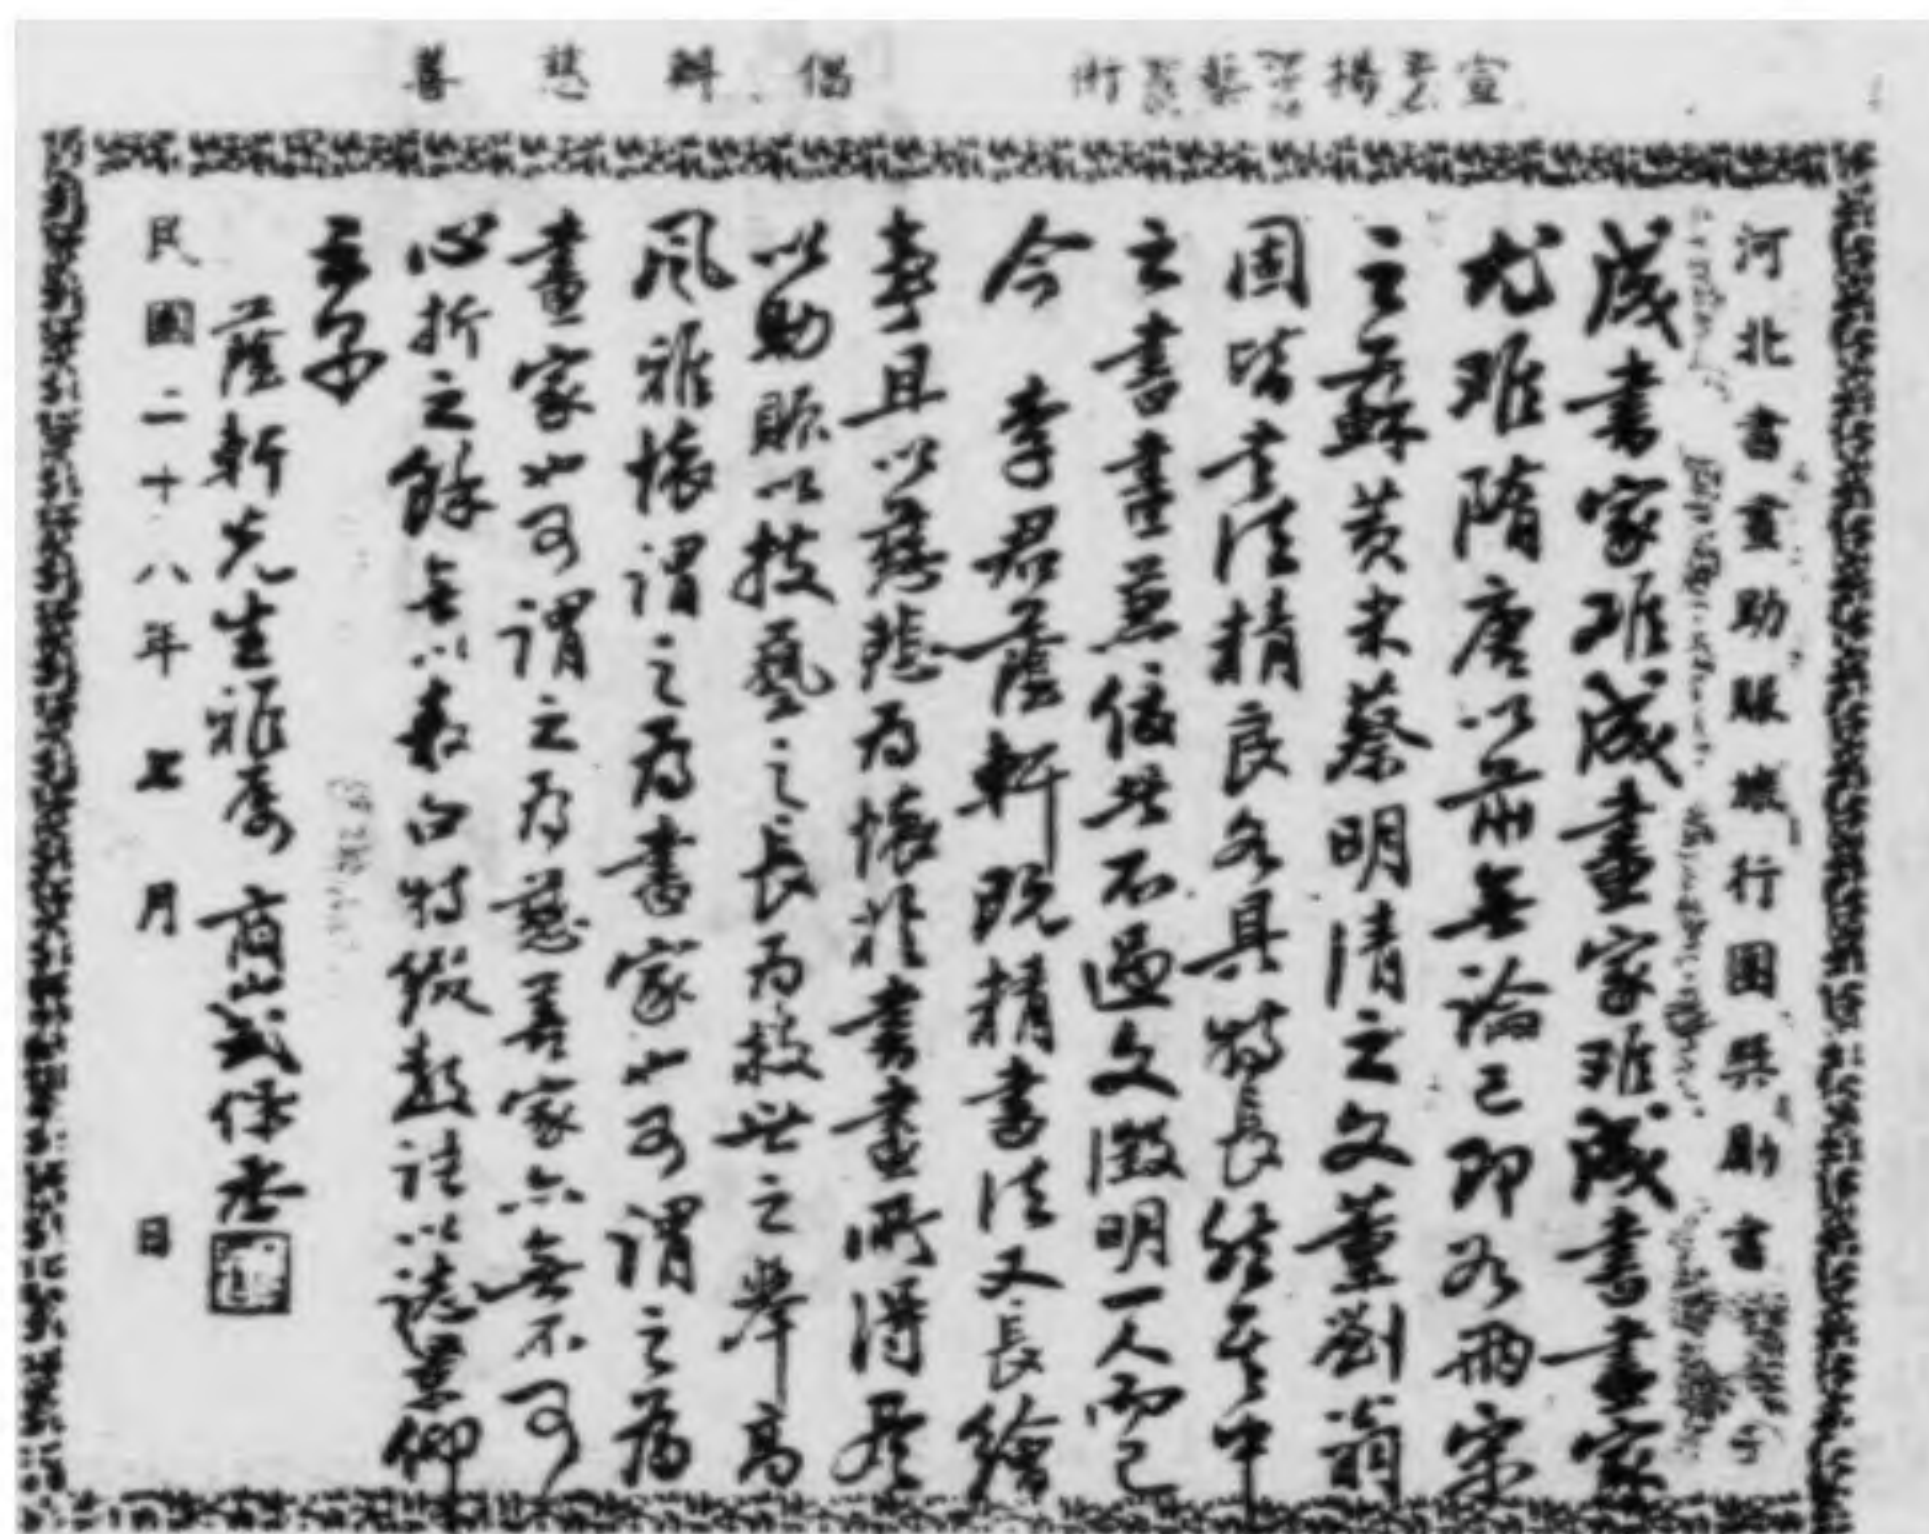 宣揚藝術
倡辦慈善
河北書畫助賑旅行團
成書家难成畫家难成書畫家
尤难隋唐以前無論已即如兩宋
之蘇黃米蔡明清之文董劉翁
固皆書法精良各具特長然其中
之書畫兼優者不過文徵明一人而已
今 李君蔭軒既精書法又長繪
事且以慈悲為懷於書畫所得盡
以助賑以技藝之長為救世之舉高
風雅懷謂之為書家也可謂之為
畫家也可謂之為慈善家亦無不可
心折之餘無以表白特綴數語以誌景仰
云尔
蔭軒先生雅鑒 商武
民國二十八年七月 日